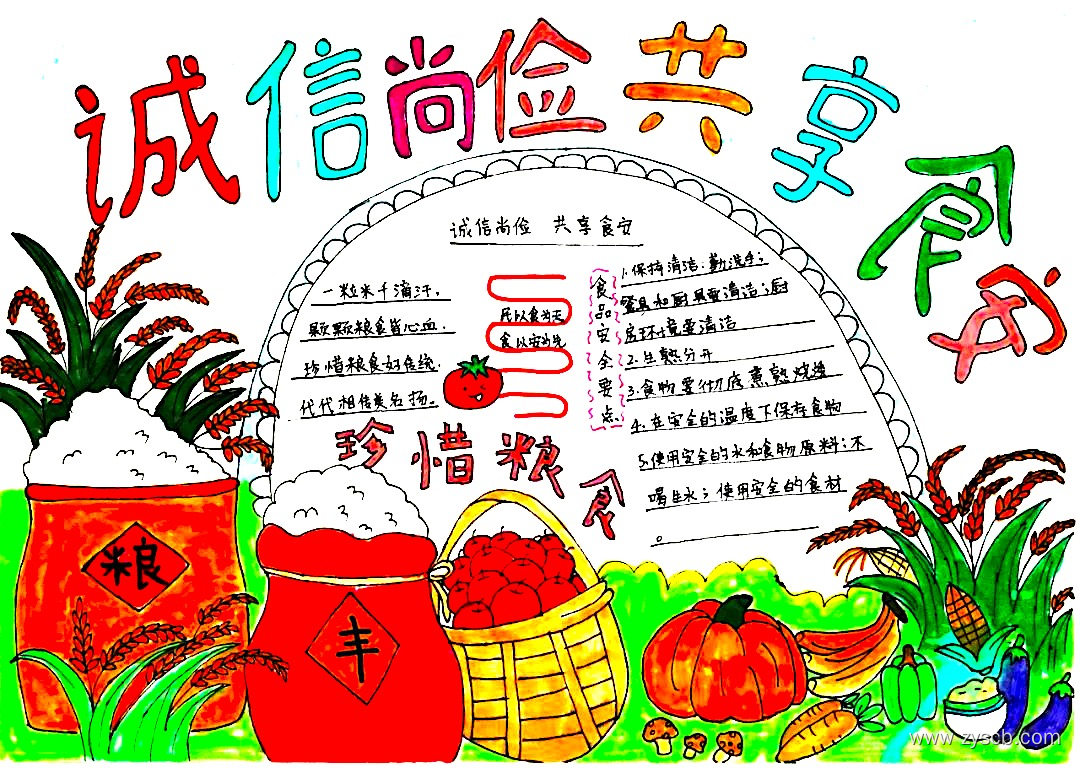 诚信尚俭共享食安
诚信尚俭 共享食安
一粒米千滴汗,
颗颗粮食皆心血.
珍惜粮食好传统.
代代相传美名扬。
民以食为天
食以安为先
珍惜粮食
食品安全要点
1.保持清洁:勤洗手;
餐具和厨具要清洁;厨
房环境要清洁
2.生熟分开
3.食物要彻底煮熟烧透
4.在安全的温度下保存食物
5.使用安全的水和食物原料:不
喝生水;使用安全的食材
。
粮
丰
www.zyscb.com